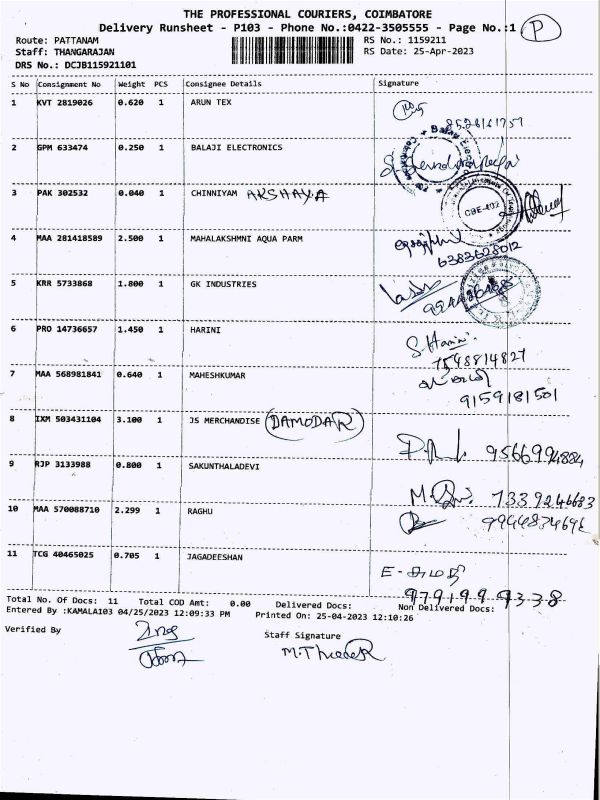 THE PROFESSIONAL COURIERS, COIMBATORE
Delivery Runsheet - P103 - Phone No.:0422-3505555 - Page No.:1 P
Route: PATTANAM RS No.: 1159211
Staff: THANGARAJAN RS Date: 25-Apr-2023
DRS No.: DCJB115921101
S No Consignment No Weight PCS Consignee Details Signature
1 KVT 2819026 0.620 1 ARUN TEX
2 GPM 633474 0.250 1 BALAJI ELECTRONICS
3 PAK 302532 0.040 1 CHINNIYAM AKSHAYA
CBE-402
4 MAA 281418589 2.500 1 MAHALAKSHMNI AQUA PARM
6383628012
5 KRR 5733868 1.800 1 GK INDUSTRIES
6 PRO 14736657 1.450 1 HARINI S. Harini
7548814827
7 MAA 568981841 0.640 1 MAHESHKUMAR
9159181501
8 IXM 503431104 3.100 1 JS MERCHANDISE (DAMODAR)
9566994884
9 RJP 3133988 0.800 1 SAKUNTHALADEVI
7339246683
10 MAA 570088710 2.299 1 RAGHU
11 TCG 40465025 0.705 1 JAGADEESHAN
E- சுமதி
9791999338
Total No. Of Docs: 11 Total COD Amt: 0.00 Delivered Docs: Non Delivered Docs:
Entered By :KAMALA103 04/25/2023 12:09:33 PM Printed On: 25-04-2023 12:10:26
Verified By Staff Signature